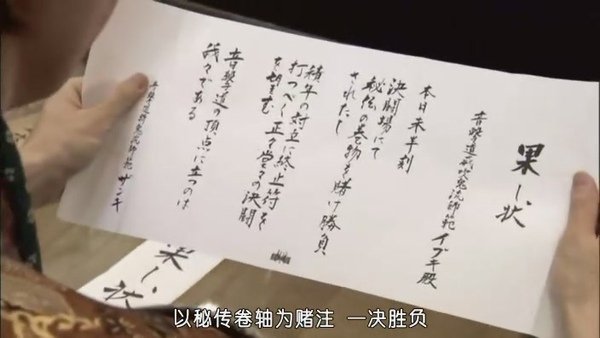 果し状
音撃道威吹鬼流師範 イブキ殿
本日未午刻
決闘場にて
秘伝の巻物を賭け勝負
されたし
積年の対立に終止符を
打つべし正々堂々の決闘
を望む
音撃道の頂点に立つのは
我々である
音撃道斬鬼流師範 ザンキ
果し状
以秘传卷轴为赌注 一决胜负